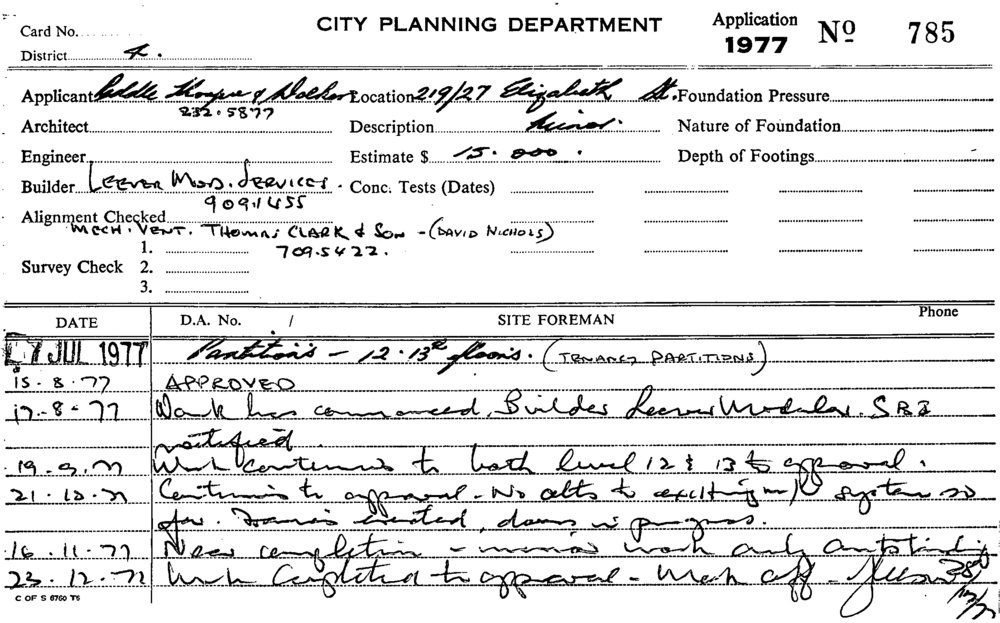 Card No.
CITY PLANNING DEPARTMENT
Application 1977 No 785
District 4.
Applicant Peddle Thorpe & Walker Location 219/27 Elizabeth St. Foundation Pressure
232.5877
Architect Description Minor. Nature of Foundation
Engineer Estimate $ 15.000. Depth of Footings
Builder LEEVER MOD. SERVICES. Conc. Tests (Dates)
909.1455
Alignment Checked
MECH. VENT. THOMAS CLARK & SON - (DAVID NICHOLS)
709.5422.
Survey Check 1.
2.
3.
DATE D.A. No. / SITE FOREMAN Phone
7 JUL 1977 Partitions - 12.13th floors. (TENANCY PARTITIONS)
15.8.77 APPROVED
17-8-77 Work has commenced. Builder Leever Modular. SBI
notified.
19.9.77 Work continues to both level 12 & 13 to approval.
21.10.77 Continues to approval - No alts to existing m/v system so
far. Frames erected, doors in progress.
16.11.77 Near completion - minor work only outstanding
23.12.77 Work Completed to approval - Mark off -
C OF S 6760 T5